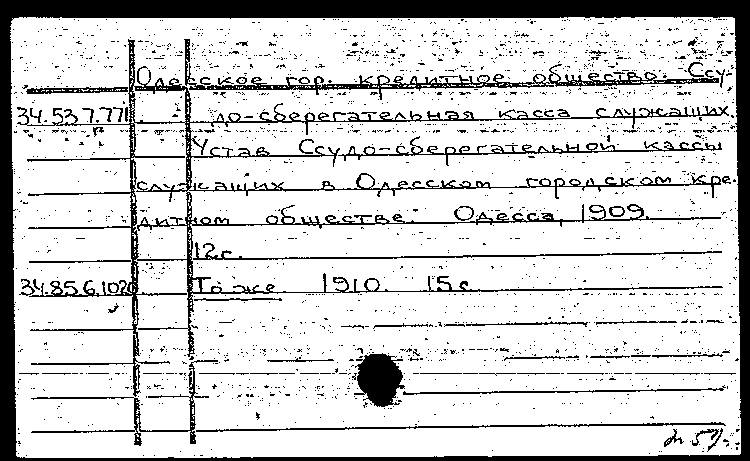 Одесское гор. кредитное общество. Ссу-
34.53 7.771. до-сберегательная касса служащих.
Устав Ссудо-сберегательной кассы
служащих в Одесском городском кре-
дитном обществе. Одесса, 1909.
12с.
34.85.6.1020. То же. 1910. 15с.